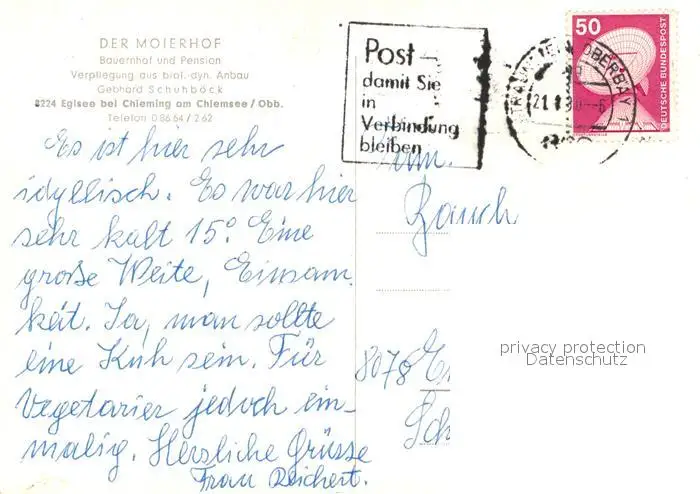 DER MOIERHOF
Bauernhof und Pension
Verpflegung aus biol.-dyn. Anbau
Gebhard Schuhböck
8224 Eglsee bei Chieming am Chiemsee / Obb.
Telefon 0 86 64 / 2 62
Es ist hier sehr
idyllisch. Es war hier
sehr kalt 15°. Eine
große Weite, Einsam
keit. Ja, man sollte
eine Kuh sein. Für
Vegetarier jedoch ein-
malig. Herzliche Grüsse
Frau Reichert.
Post
damit Sie
in
Verbindung
bleiben
50
DEUTSCHE BUNDESPOST
Fam.
Rauch
8078
privacy protection
Datenschutz